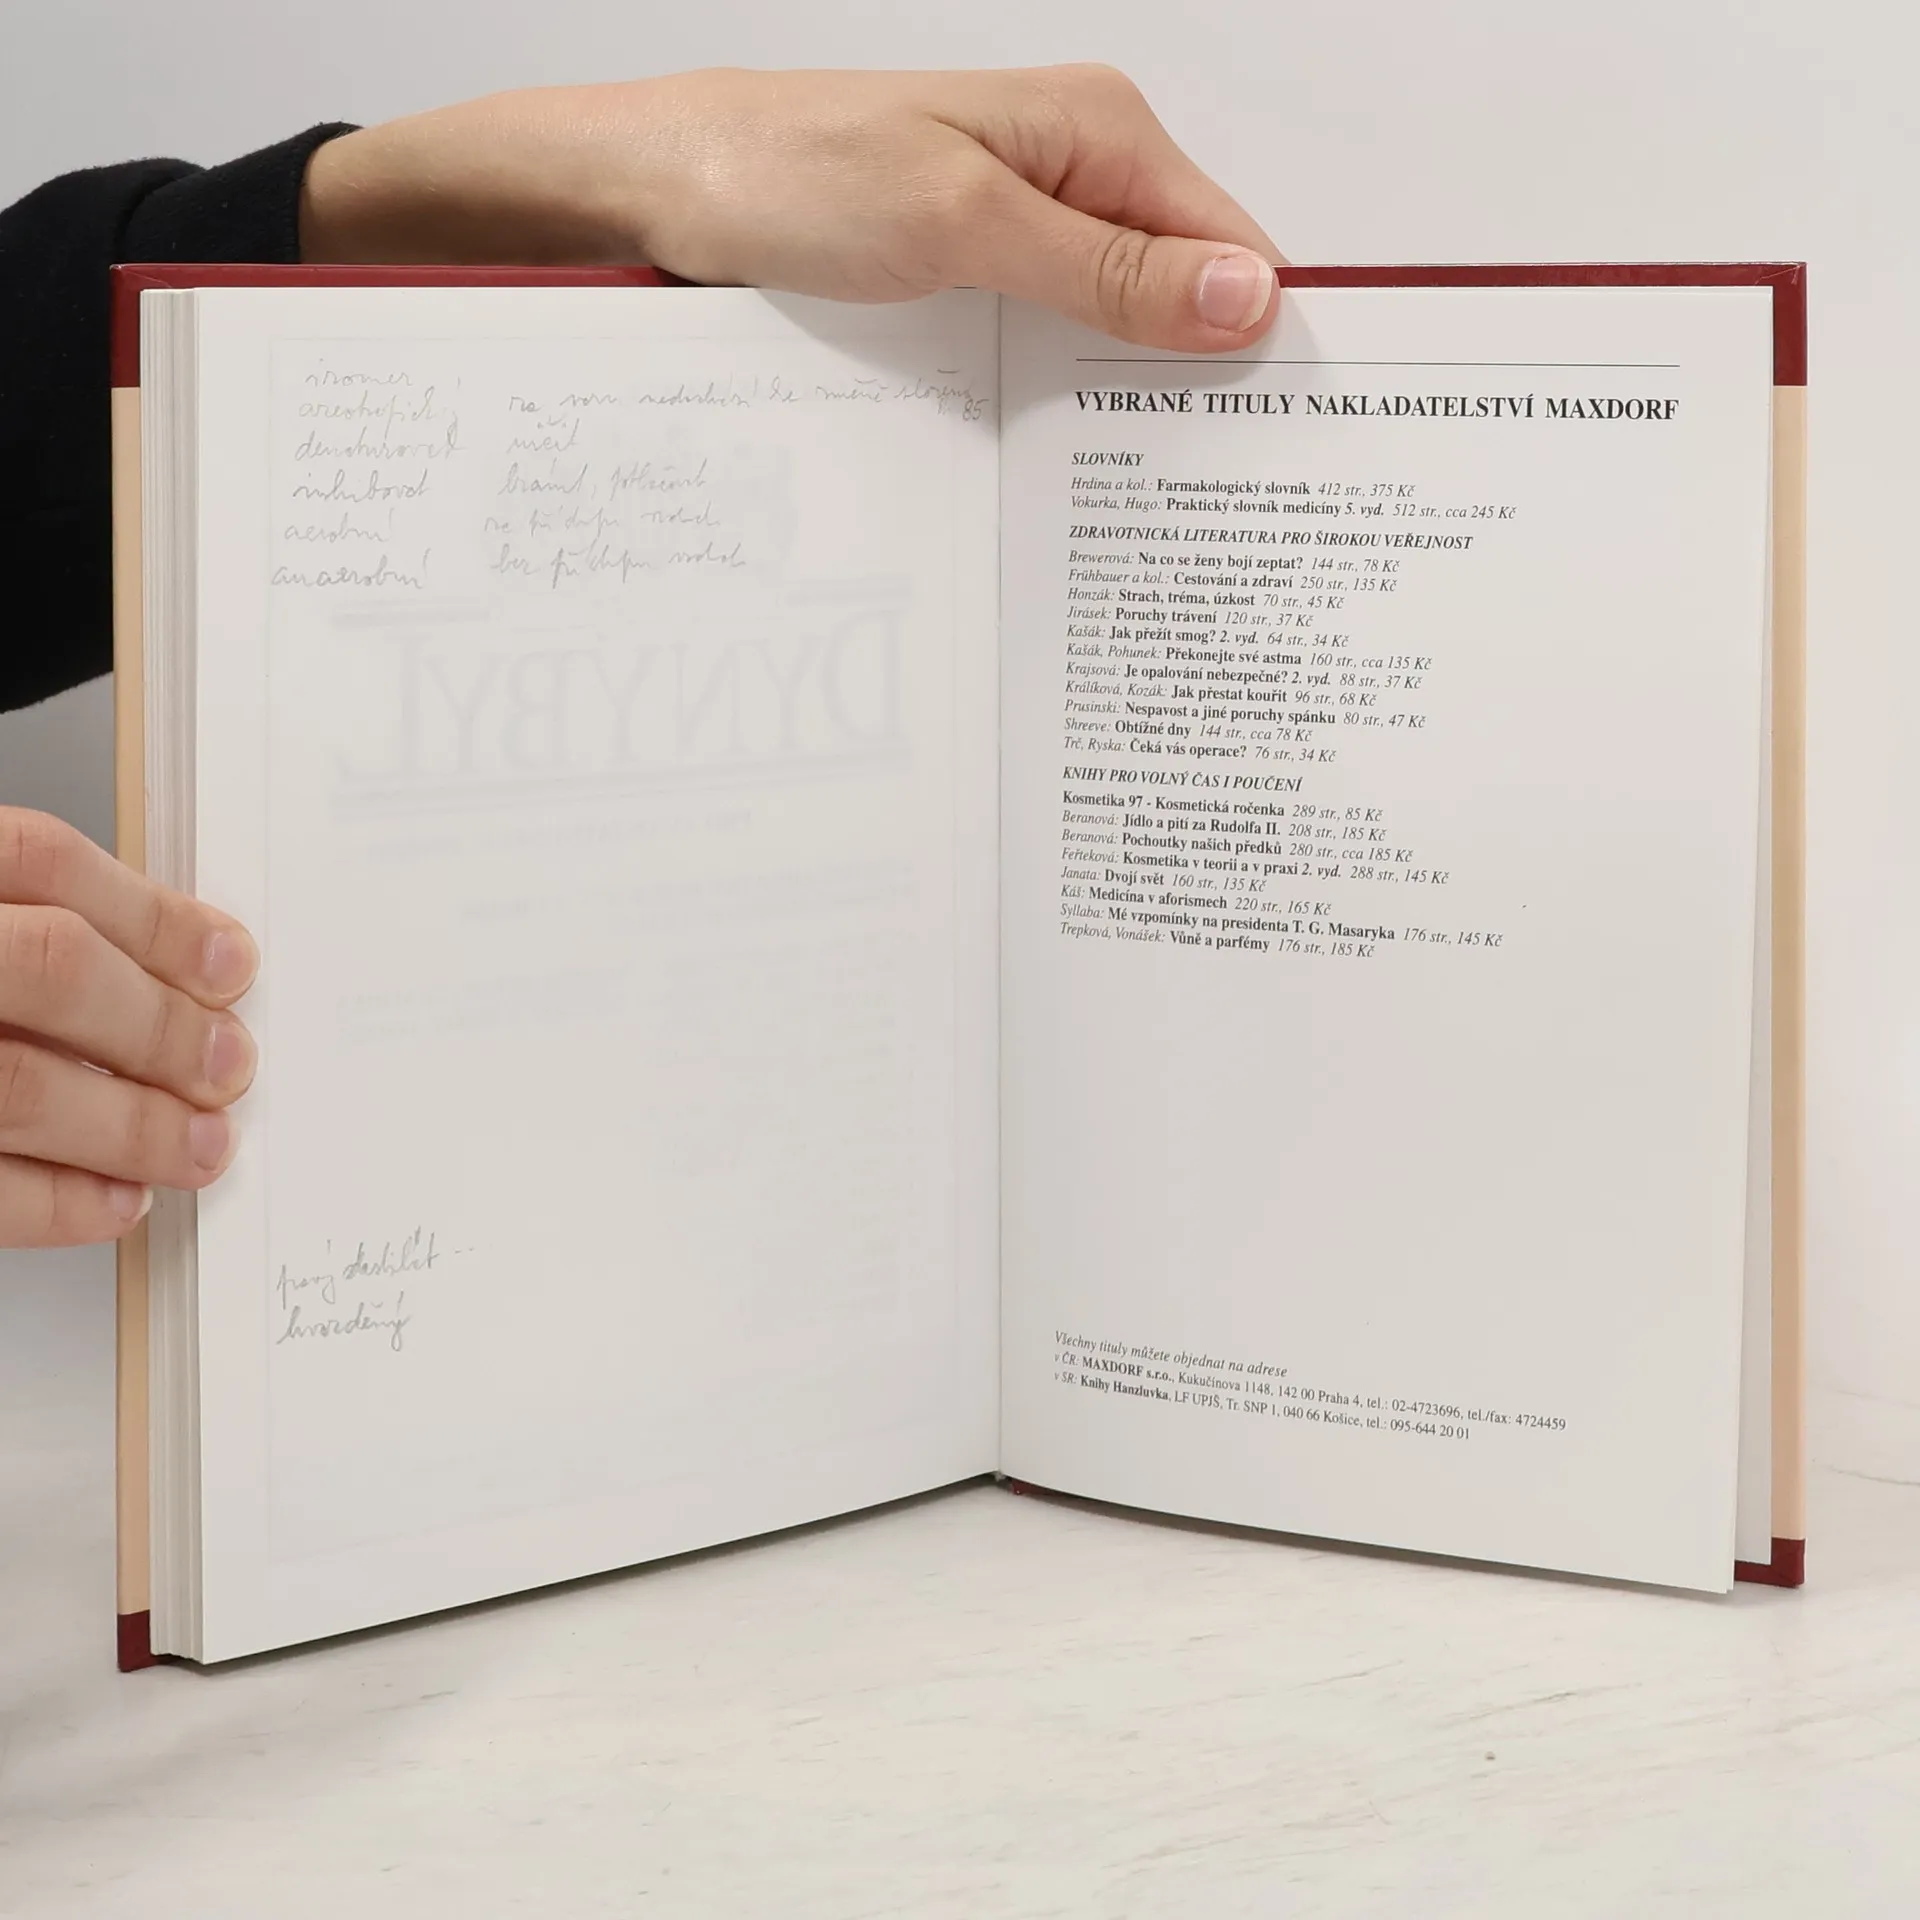 izomer
azeotropický
denaturovat ničit
inhibovat bránit, potlačovat
aerobní za přístupu vzduch
anaerobní bez přístupu vzduch
85
pravý destilát --
hvozděný
VYBRANÉ TITULY NAKLADATELSTVÍ MAXDORF
SLOVNÍKY
Hrdina a kol.: Farmakologický slovník 412 str., 375 Kč
Vokurka, Hugo: Praktický slovník medicíny 5. vyd. 512 str., cca 245 Kč
ZDRAVOTNICKÁ LITERATURA PRO ŠIROKOU VEŘEJNOST
Brewerová: Na co se ženy bojí zeptat? 144 str., 78 Kč
Frühbauer a kol.: Cestování a zdraví 250 str., 135 Kč
Honzák: Strach, tréma, úzkost 70 str., 45 Kč
Jirásek: Poruchy trávení 120 str., 37 Kč
Kašák: Jak přežít smog? 2. vyd. 64 str., 34 Kč
Kašák, Pohunek: Překonejte své astma 160 str., cca 135 Kč
Krajsová: Je opalování nebezpečné? 2. vyd. 88 str., 37 Kč
Králíková, Kozák: Jak přestat kouřit 96 str., 68 Kč
Prusinski: Nespavost a jiné poruchy spánku 80 str., 47 Kč
Shreeve: Obtížné dny 144 str., cca 78 Kč
Trč, Ryska: Čeká vás operace? 76 str., 34 Kč
KNIHY PRO VOLNÝ ČAS I POUČENÍ
Kosmetika 97 - Kosmetická ročenka 289 str., 85 Kč
Beranová: Jídlo a pití za Rudolfa II. 208 str., 185 Kč
Beranová: Pochoutky našich předků 280 str., cca 185 Kč
Feřteková: Kosmetika v teorii a v praxi 2. vyd. 288 str., 145 Kč
Janata: Dvojí svět 160 str., 135 Kč
Káš: Medicína v aforismech 220 str., 165 Kč
Syllaba: Mé vzpomínky na presidenta T. G. Masaryka 176 str., 145 Kč
Trepková, Vonášek: Vůně a parfémy 176 str., 185 Kč
Všechny tituly můžete objednat na adrese
v ČR: MAXDORF s.r.o., Kukučínova 1148, 142 00 Praha 4, tel.: 02-4723696, tel./fax: 4724459
v SR: Knihy Hanzluvka, LF UPJŠ, Tr. SNP 1, 040 66 Košice, tel.: 095-644 20 01